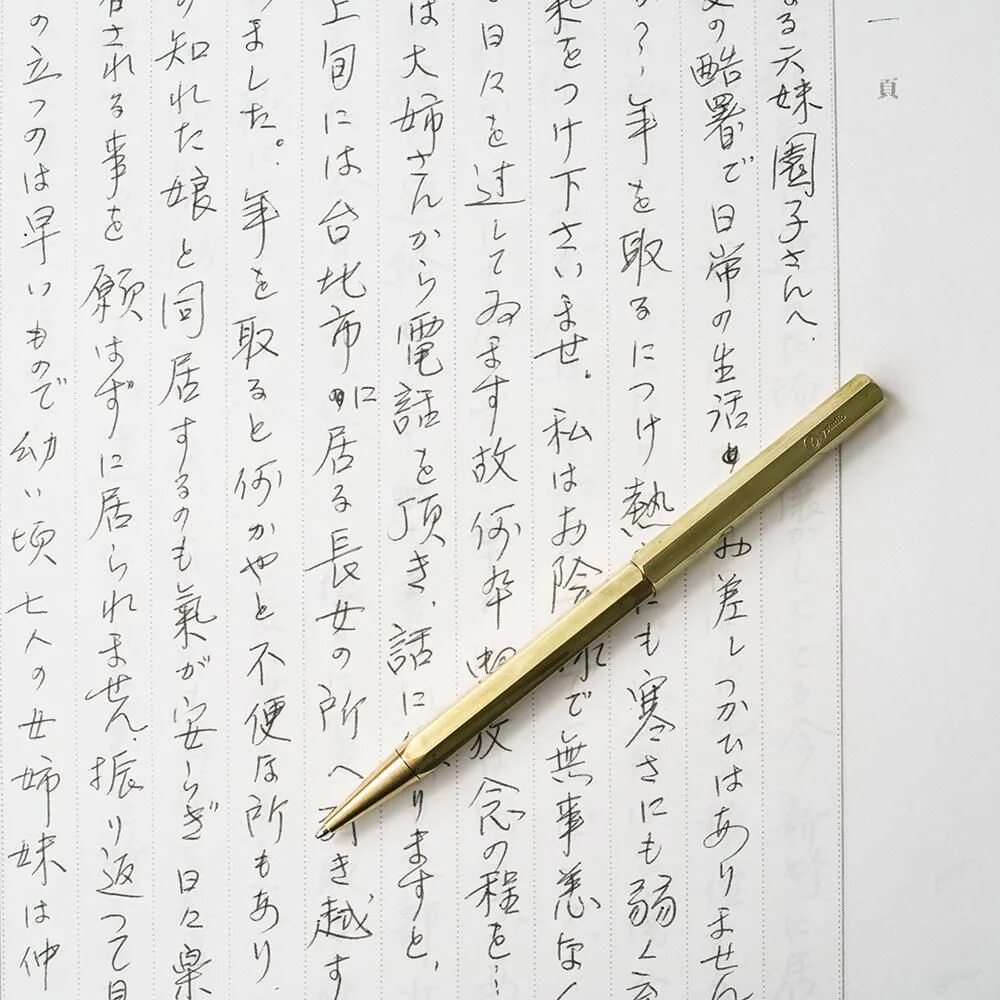 一頁
る六妹園子さんへ、
の酷暑で日常の生活
み差しつかひはありません
か？年を取るにつけ熱
にも寒さにも弱く
をつけ下さいませ。私はお陰
で無事恙なく
日々を过してゐます故何卒
放念の程を…
は大姉さんから電話を頂き、話に
りますと、
上旬には台北市に居る長女の所へ
き越す
ました。年を取ると何かやと不便な所もあり
の知れた娘と同居するのも氣が安らぎ日々
される事を願はずに居られません、振り返つて
の立つのは早いもので幼い頃七人の女姉妹は仲